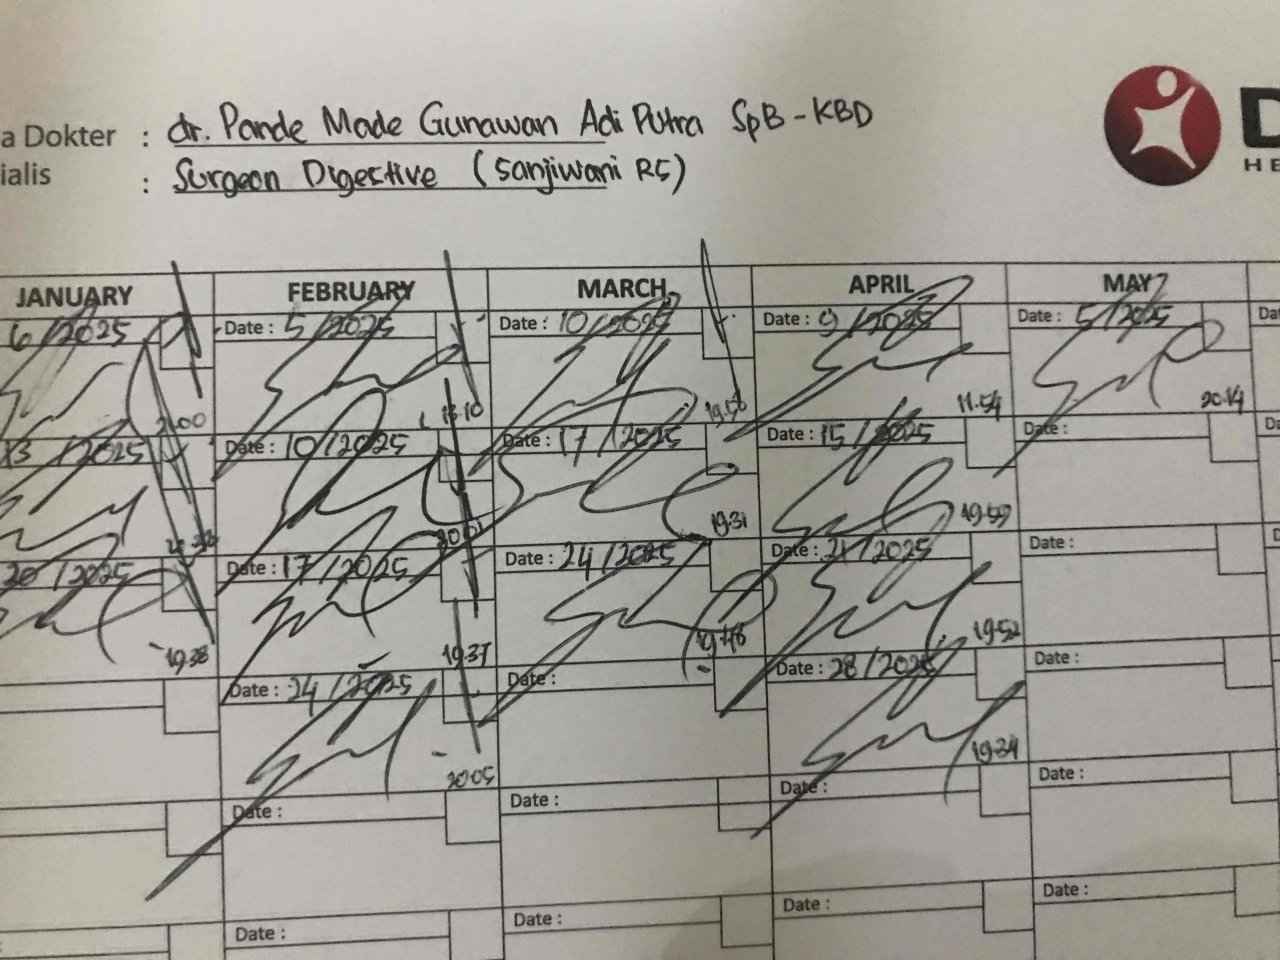 a Dokter : dr. Pande Made Gunawan Adi Putra SpB-KBD
ialis : Surgeon Digestive (Sanjiwani RS)
D
HE
JANUARY FEBRUARY MARCH APRIL MAY
6/2025 Date : 5/2025 Date : 10/2025 Date : 9/2025 Date : 5/2025 Da
21.00 18.10 19.56 11.54 20.14
13/2025 Date : 10/2025 Date : 17/2025 Date : 15/2025 Date : Da
20.01 19.31 19.59
20/2025 Date : 17/2025 Date : 24/2025 Date : 21/2025 Date : D
19.38 19.37 19.48 19.52
Date : 24/2025 Date : Date : 28/2025 Date :
20.05 19.34
Date : Date : Date : Date :
Date : Date : Date : Date :